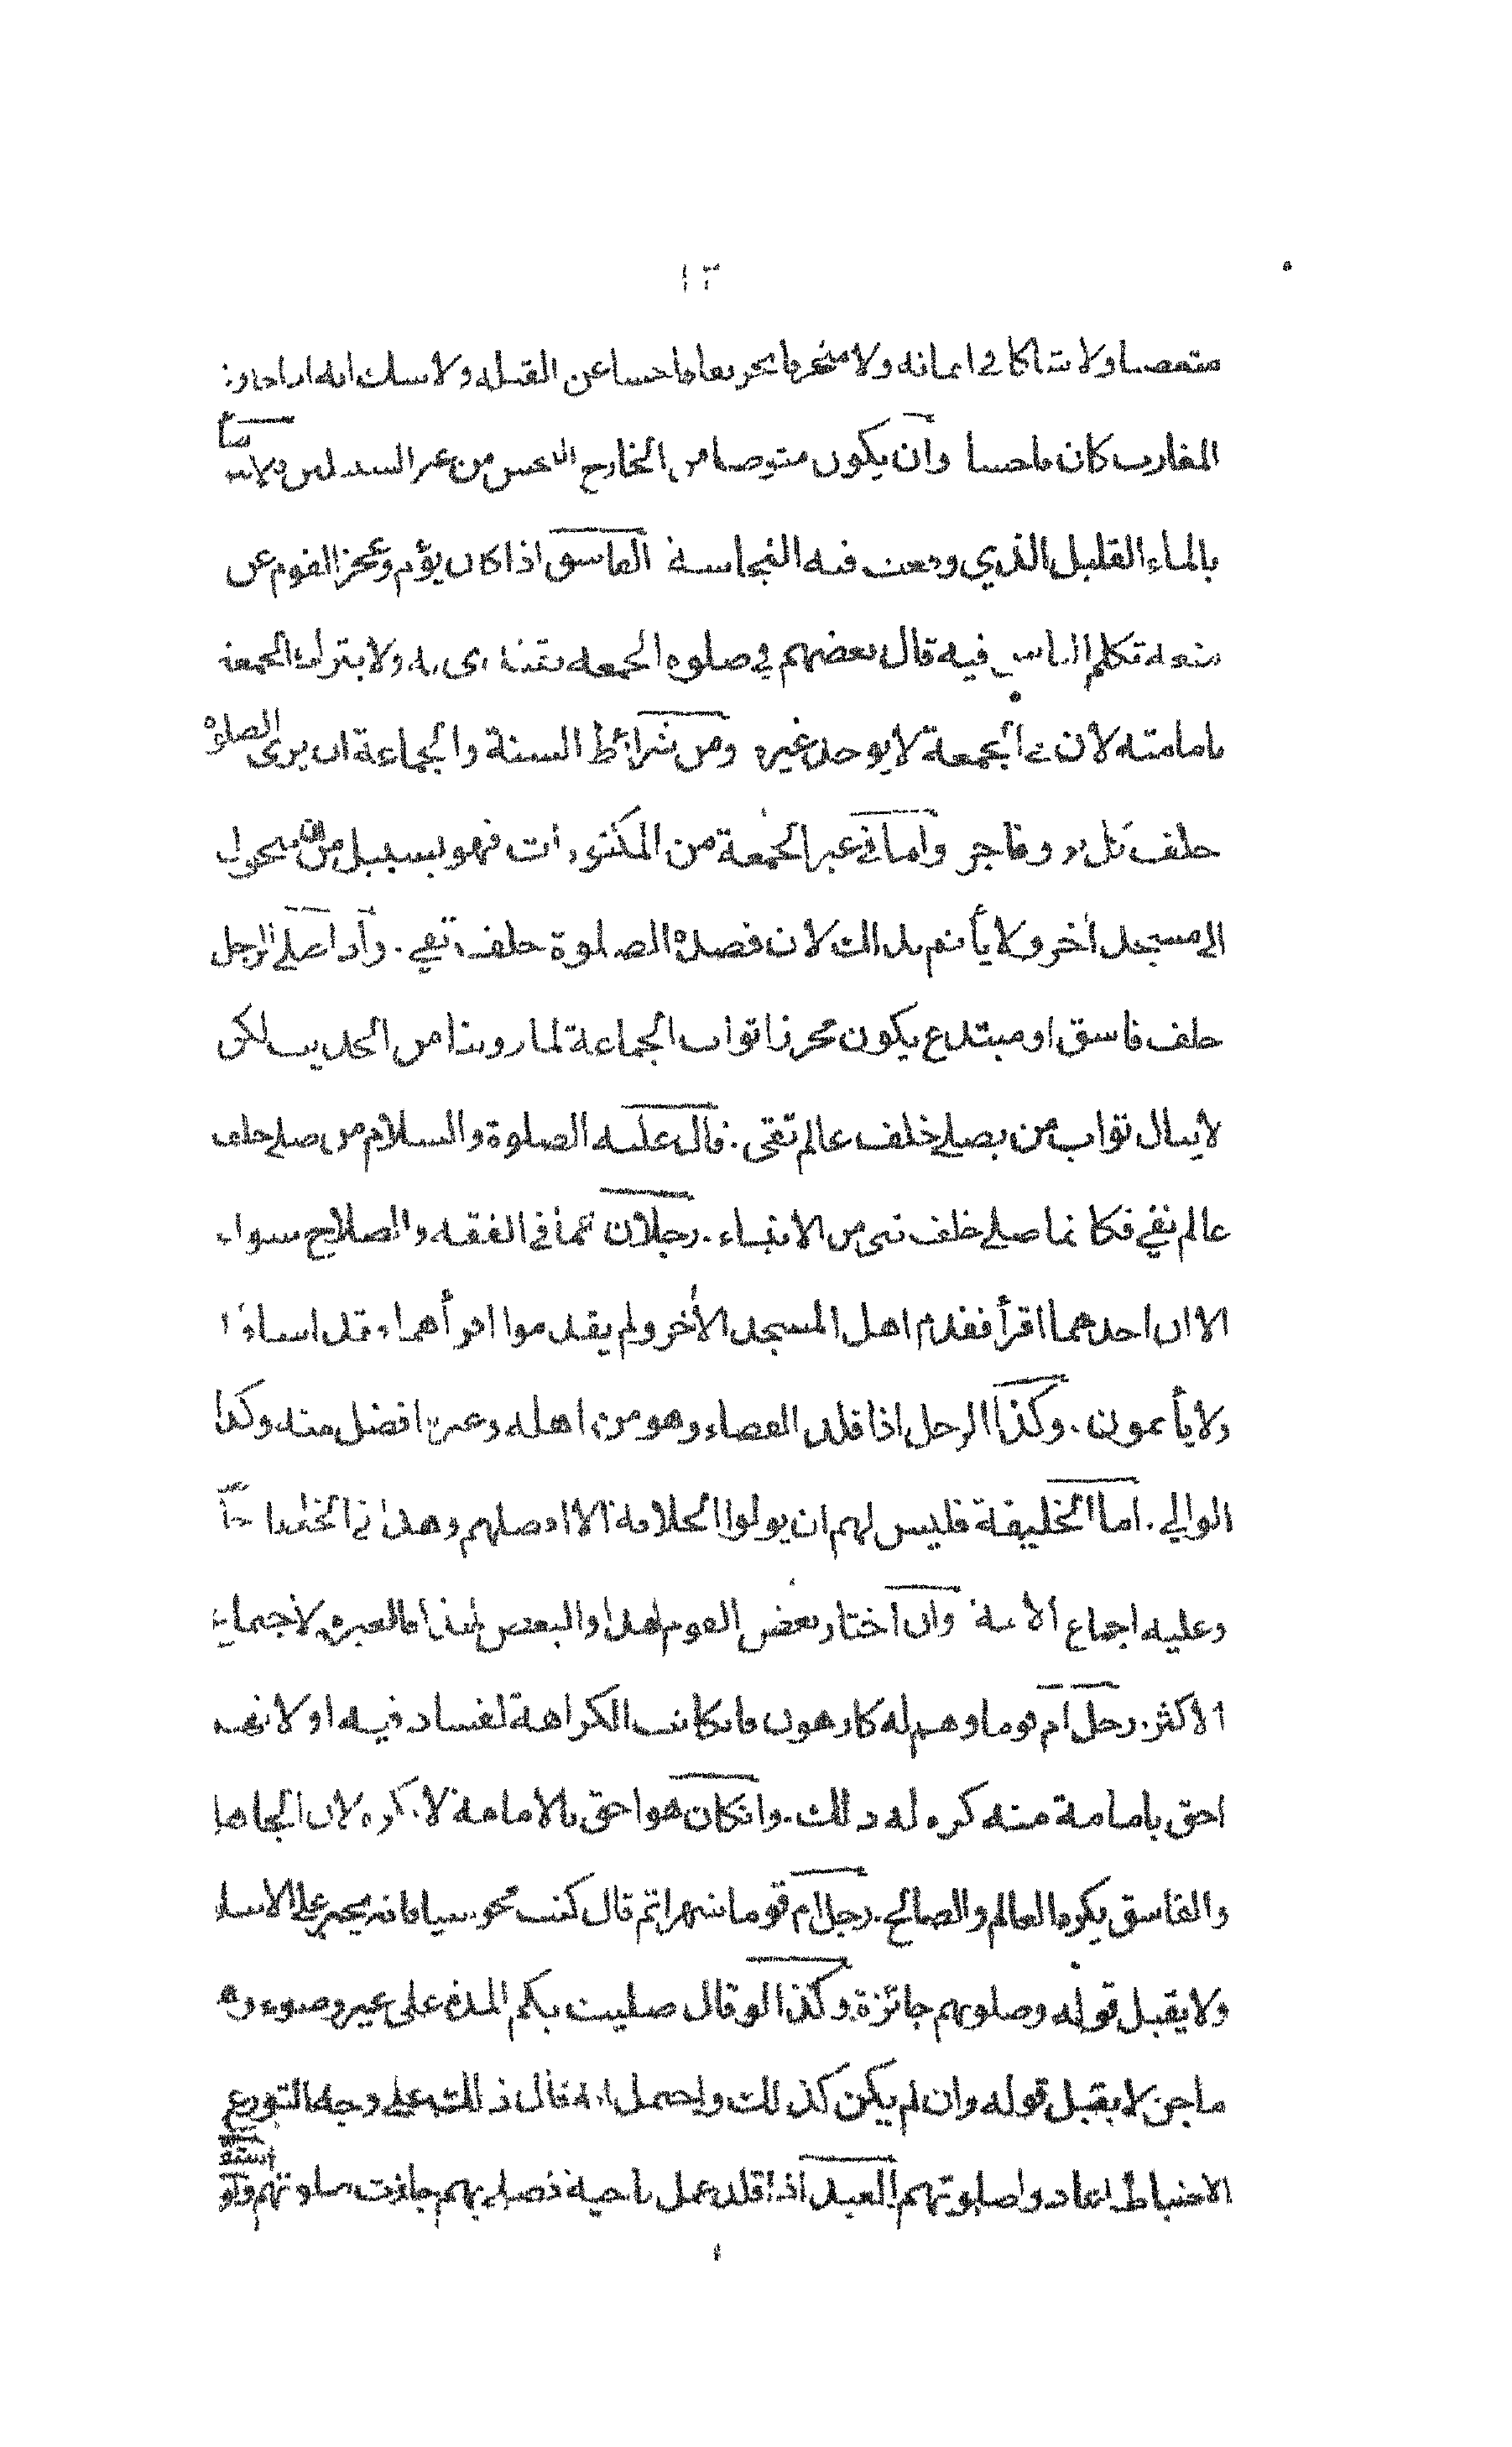 ١٣
متعصبا ولا شاكا في ايمانه ولا منحرفا تحريفا فاحشا عن القبلة ولا شك انه اذا جاوز
المغارب كان فاحشا وان يكون متوضا من الخارج النجس من غير السبيلين ولا يتوضأ
بالماء القليل الذي وقعت فيه النجاسة الفاسق اذا كان يؤم وعجز القوم عن
منعه تكلم الناس فيه قال بعضهم في صلوة الجمعة يقتدى به ولا يترك الجمعة
بامامته لان في الجمعة لا يوجد غيره ومن شرائط السنة والجماعة ان يرى الصلوة
خلف كل بر وفاجر واما في غير الجمعة من المكتوبات فهو بسبيل من ان يتحول
الى مسجد آخر ولا يأثم بذلك لان قصده الصلوة خلف تقي . واذا صلى الرجل
خلف فاسق او مبتدع يكون محرزا ثواب الجماعة لما روينا من الحديث لكن
لا ينال ثواب من يصلي خلف عالم تقى . قال عليه الصلوة والسلام من صلى خلف
عالم تقي فكانما صلى خلف نبى من الانبياء . رجلان هما في الفقه والصلاح سواء
الا ان احدهما اقرأ فقدم اهل المسجد الآخر ولم يقدموا اقرأهما فقد اساؤا
ولا يأثمون . وكذا الرجل اذا قلد القضاء وهو من اهله وغيره افضل منه وكذا
الوالي . اما الخليفة فليس لهم ان يولوا الخلافة الا افضلهم وهذا في الخلفاء خاصة
وعليه اجماع الامة وان اختار بعض القوم لهذا والبعض لهذا فالعبرة لاجماع
الاكثر . رجل ام قوما وهم له كارهون فانكانت الكراهة لفساد فيه او لانهم
احق بامامة منه كره له ذلك . وانكان هو احق بالامامة لا يكره لان الجاهل
والفاسق يكره العالم والصالح . رجل ام قوما شهرا ثم قال كنت مجوسيا فانه يجبر على الاسلام
ولا يقبل قوله وصلوتهم جائزة وكذا لو قال صليت بكم المدة على غير وضوء وهو
ماجن لا يقبل قوله وان لم يكن كذلك واحتمل انه قال ذلك على وجه التورع
الاحتياط اعادوا صلوتهم العبد اذا قلد عمل ناحية فصلى بهم جازت صلوتهم ولو